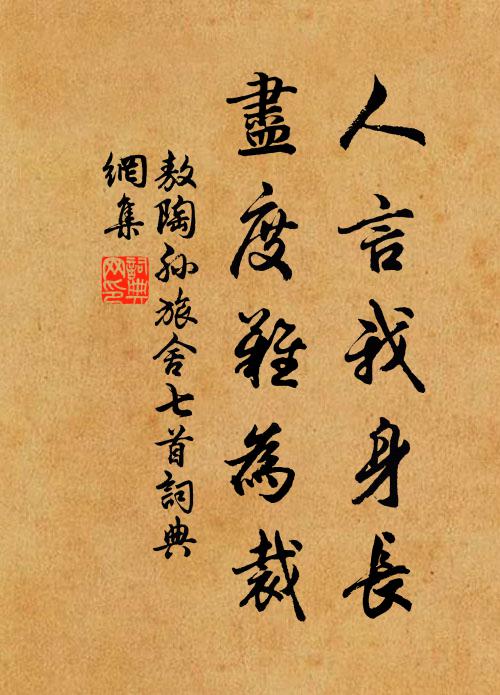 人言我身長
盡度難為裁
敖陶孙旅舍七首詞典
網集
詞典
网印